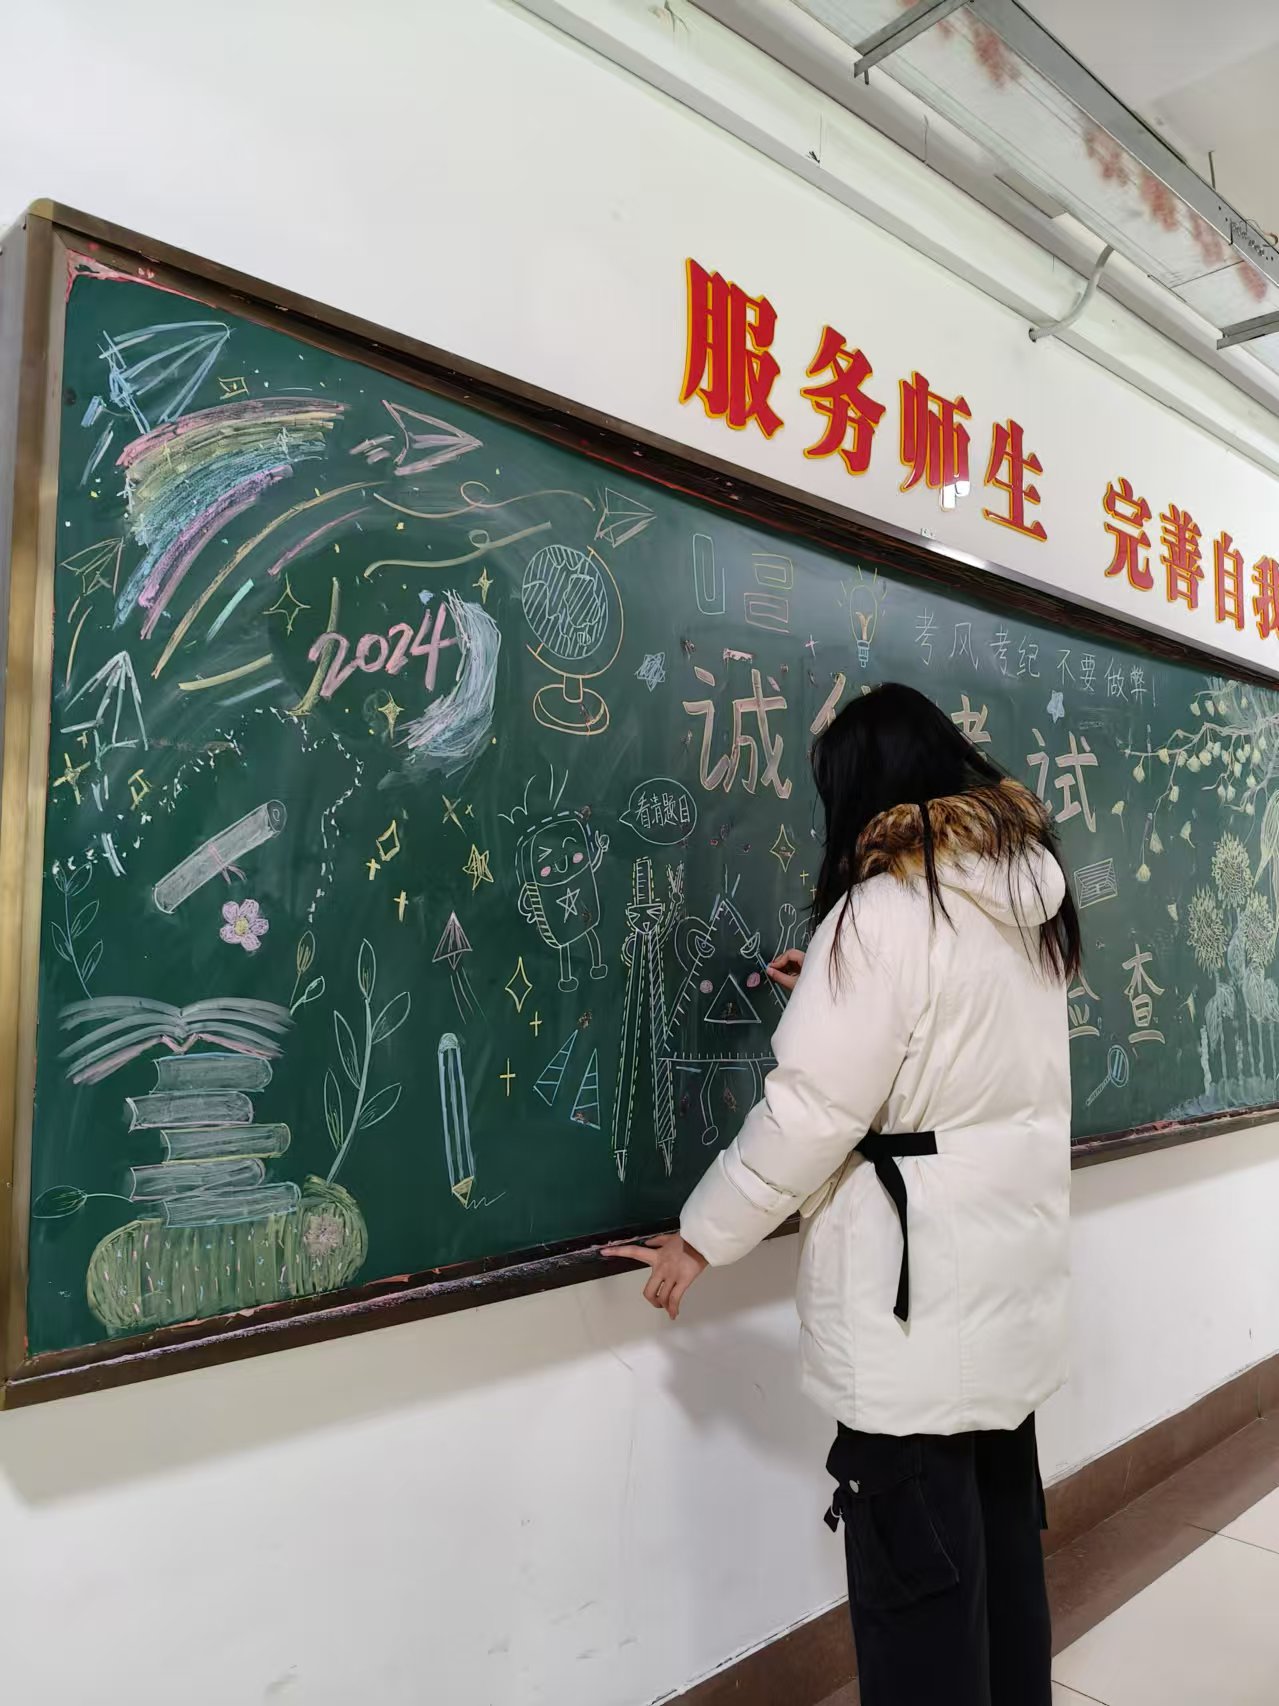 服务师生 完善自我
2024
考风考纪 不要做弊!
诚信考试
看清题目
检查